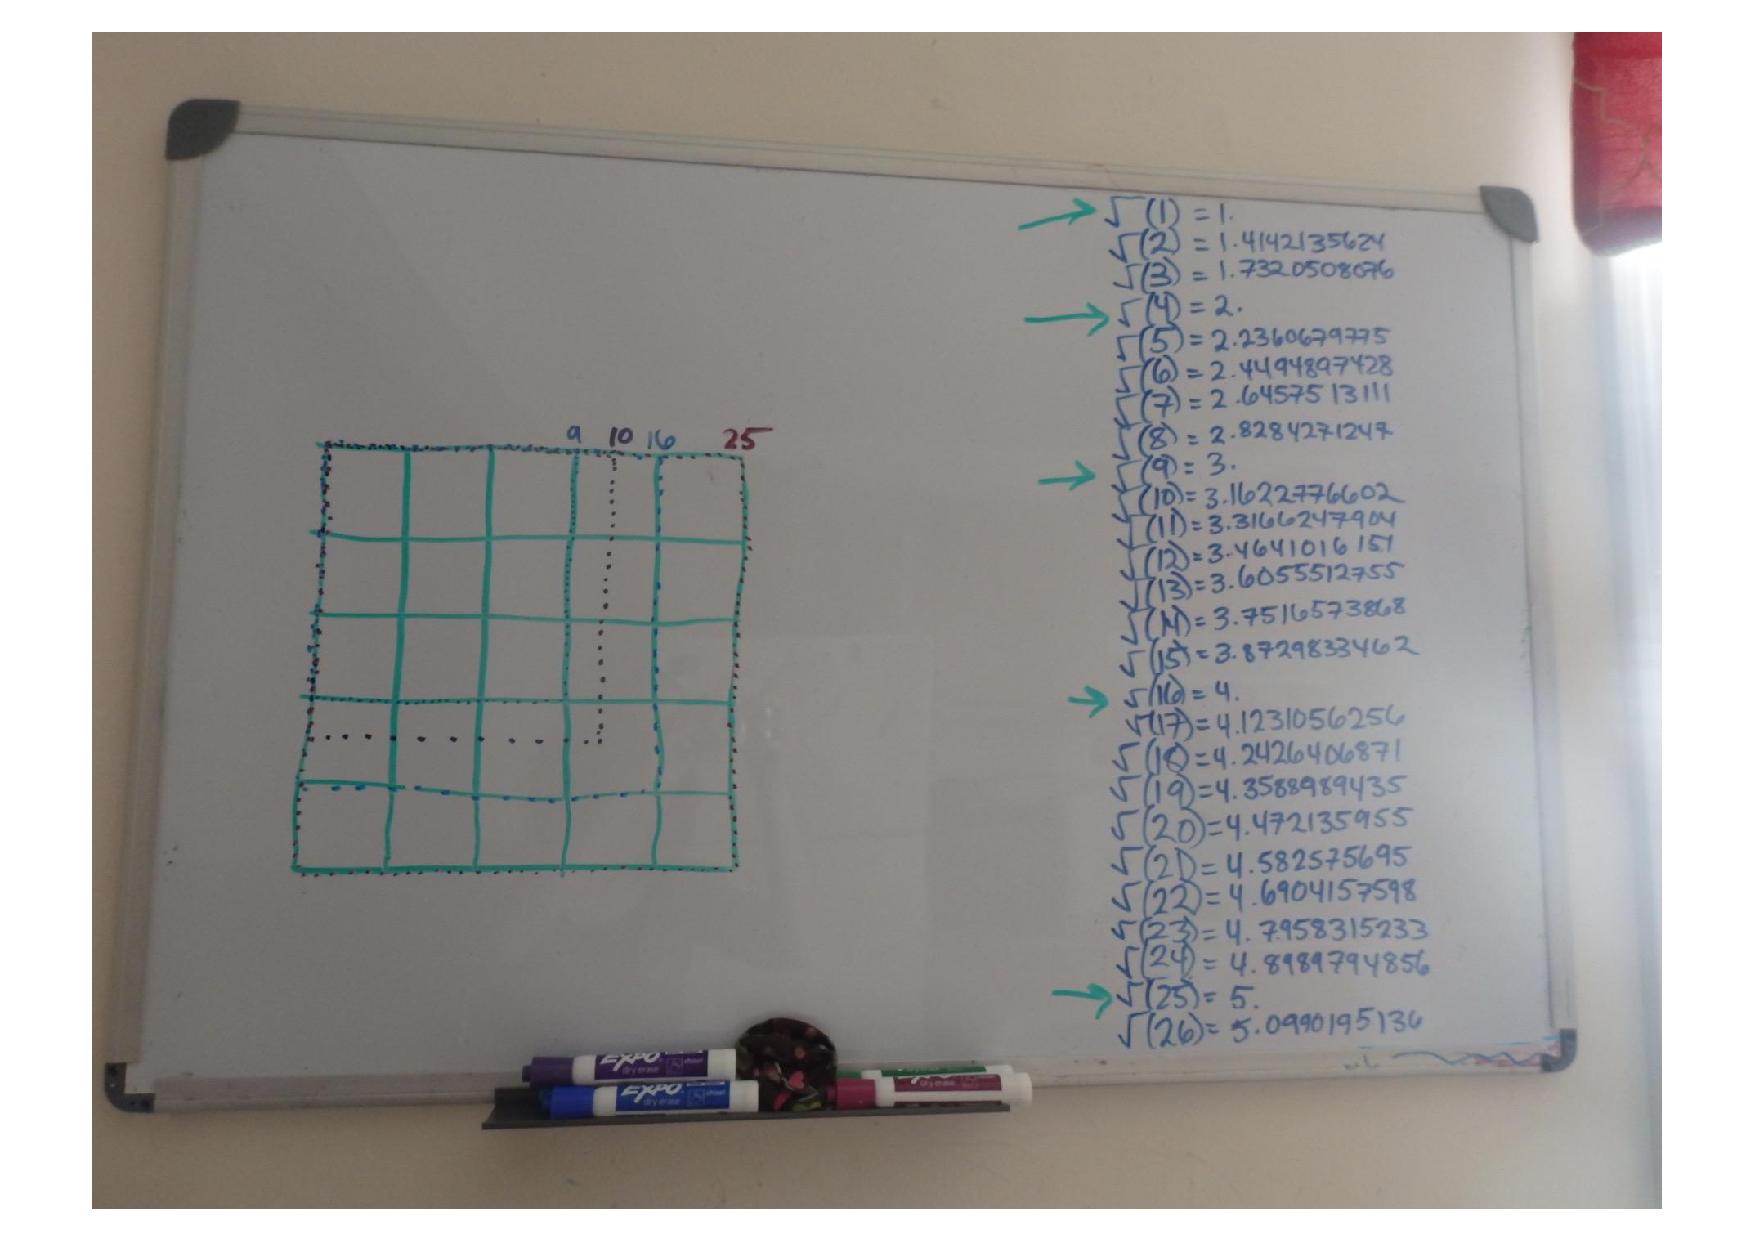 √(1) = 1.
√(2) = 1.4142135624
√(3) = 1.7320508076
√(4) = 2.
√(5) = 2.2360679775
√(6) = 2.4494897428
√(7) = 2.6457513111
√(8) = 2.8284271247
√(9) = 3.
√(10) = 3.1622776602
√(11) = 3.3166247904
√(12) = 3.4641016151
√(13) = 3.6055512755
√(14) = 3.7516573868
√(15) = 3.8729833462
√(16) = 4.
√(17) = 4.1231056256
√(18) = 4.2426406871
√(19) = 4.3588989435
√(20) = 4.472135955
√(21) = 4.582575695
√(22) = 4.6904157598
√(23) = 4.7958315233
√(24) = 4.8989794856
√(25) = 5.
√(26) = 5.0990195136
9 10 16 25
EXPO
dry erase
EXPO
dry erase
dry erase